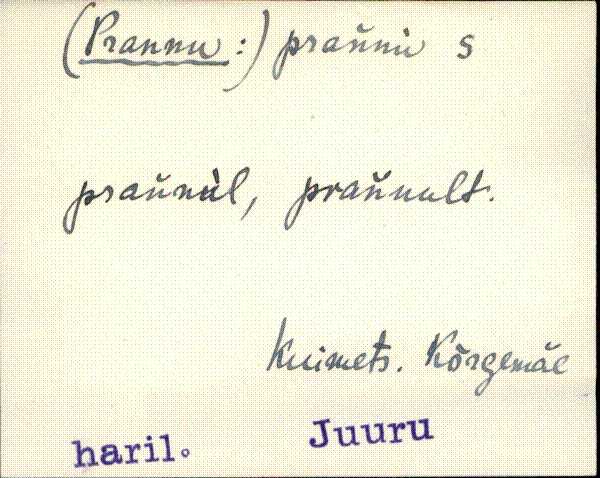 (Prannu:) prań̆nu s
prań̆nùl, prań̆nult.
Kuimets. Kõrgemäe
haril. Juuru